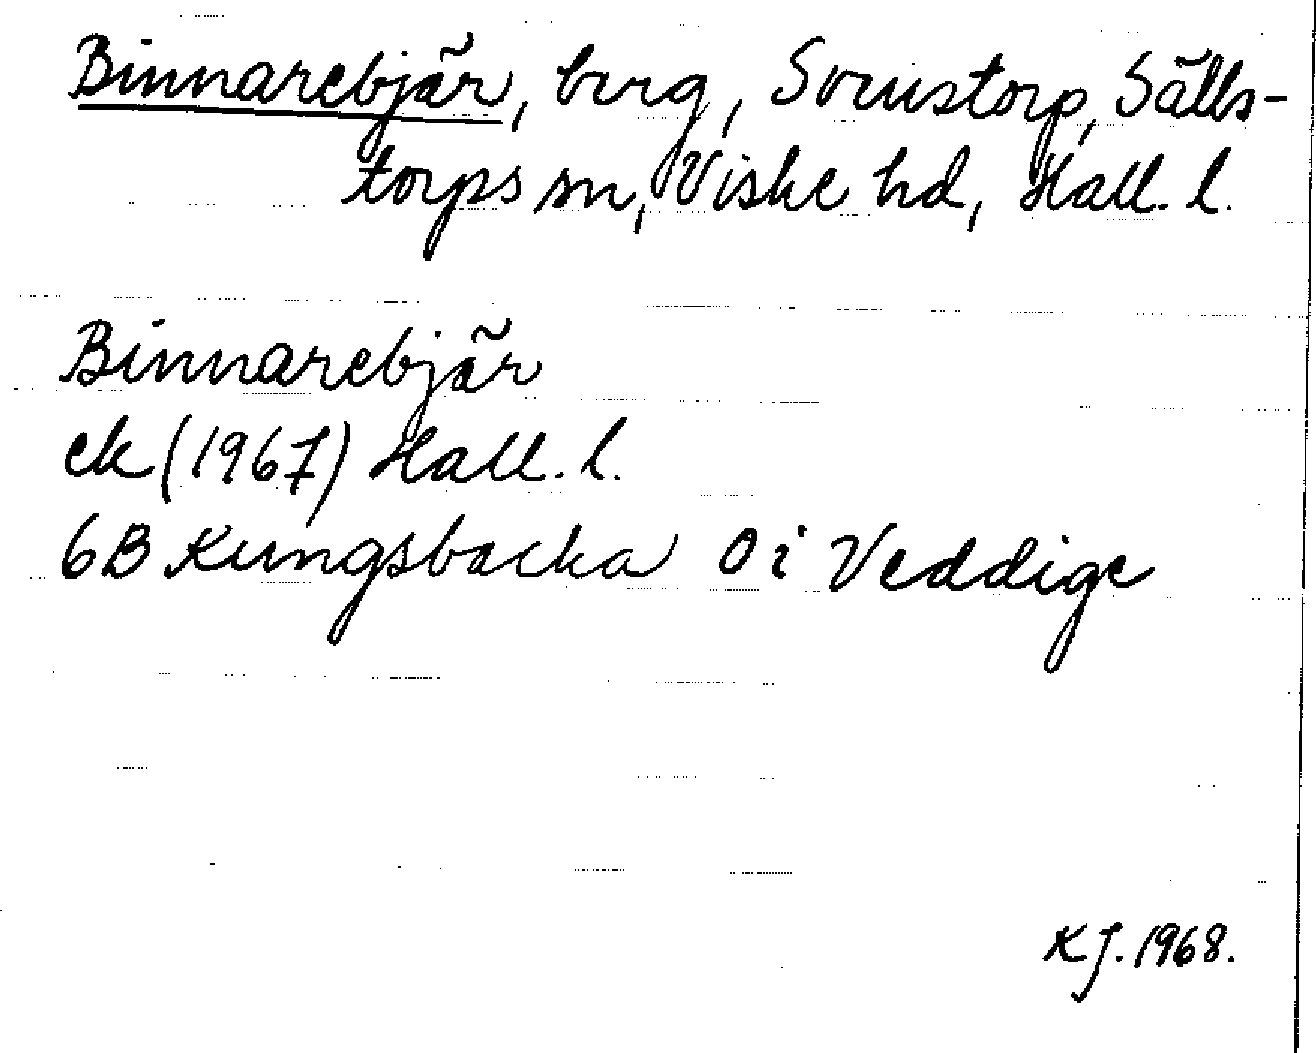 Binnarebjär, berg, Svenstorp, Sälls-
torps sn, Viske hd, Hall. l.
Binnarebjär
ek (1967) Hall. l.
6B Kungsbacka 0 i Veddige
KJ. 1968.